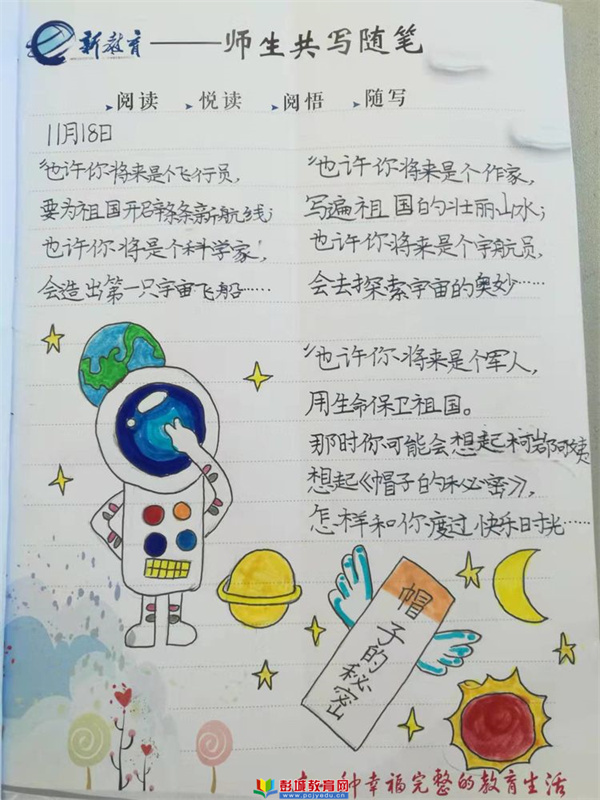 新教育——师生共写随笔
阅读 悦读 阅悟 随写
11月18日
“也许你将来是个飞行员，
要为祖国开辟条条新航线；
也许你将是个科学家，
会造出第一只宇宙飞船……
“也许你将来是个作家，
写遍祖国的壮丽山水；
也许你将来是个宇航员，
会去探索宇宙的奥妙……
“也许你将来是个军人，
用生命保卫祖国。
那时你可能会想起柯岩阿姨
想起《帽子的秘密》，
怎样和你度过快乐时光……
帽子的秘密
种幸福完整的教育生活
彭城教育网
www.pcjyedu.cn